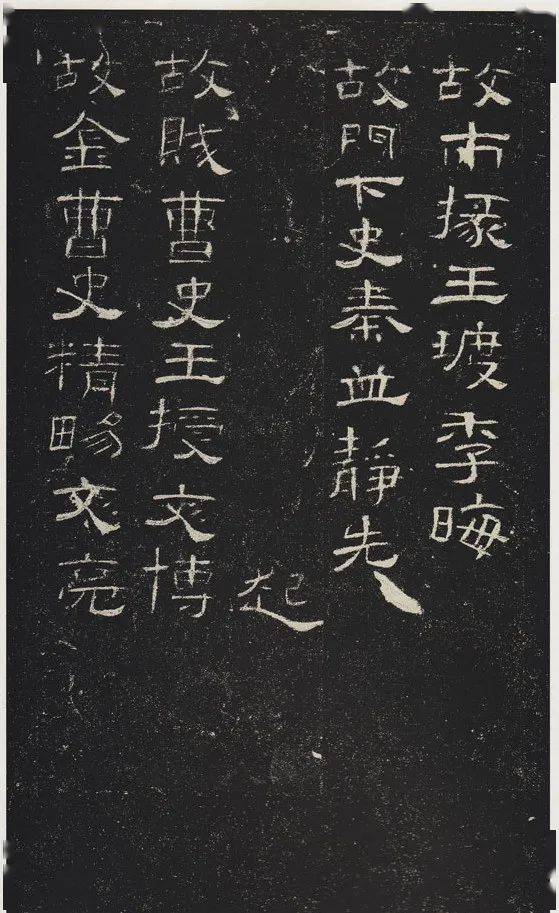 故市掾王玻季晦
故門下史秦並靜先
起
故賊曹史王授文博
故金曹史精畼文亮